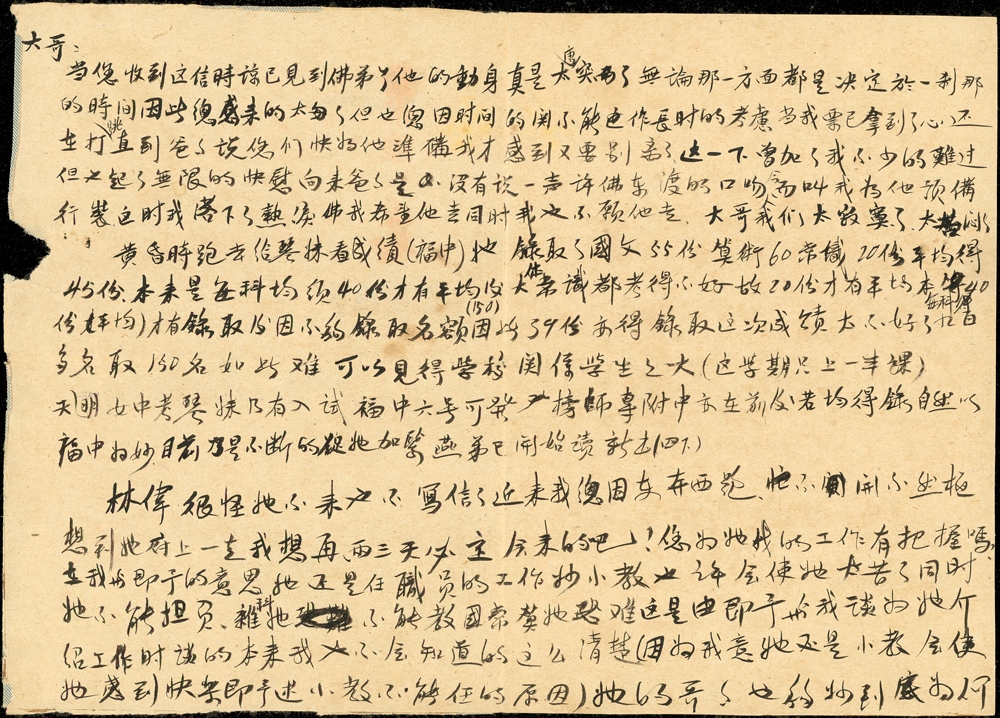 大哥：
当您收到这信時諒已見到佛弟了他的動身真是太突唐了無論那一方面都是决定於一刹那
的時间因此總感来的太匆了但也總因时间的関係不能更作長时的考慮当我票已拿到了心还
在打跳直到爸了說您们快为他準備我才感到又要别离了这一下曾加了我不少的難过
但也起了無限的快慰向来爸了是没有說一声许佛東渡的口吻今而叫我为他預備
行裝这时我落下了熱淚佛我希望他去同时我也不願他去 大哥我们太寂寞了
黄昏時跑去给琴妹看成績(福中)她錄取了國文55份算術60常識20份平均得
45份本来是每科均须40份才有平均後大家常識都考得不好故20份才有平均本每科40
份(平均)才有錄取後因不夠錄取名額(150)因此39份亦得錄取这次成績太不好了百
多名取150名如此难可以見得学校関係学生之大(这学期只上一半課)
天明女中考琴妹乃有入試福中六号可發榜師專附中亦在前後若均得錄自然以
福中为妙目前乃是不断的促她加緊燕弟已開始讀新书(四下)
林偉很怪她不来也不寫信了近来我總因東奔西跑忙不開不然極
想到她府上一走我想再两三天必定会来的吧！您为她找的工作有把握嗎？
在我与即予的意思她还是任職員的工作妙小教也许会使她太苦了同时
她不能担負雜科她不能教國常算她 难这是由即予与我談为她介
绍工作时談的本来我也不会知道的这么清楚(因为我意她还是小教会使
她感到快楽即予述小教不能任的原因)她的哥了也夠妙到底为何